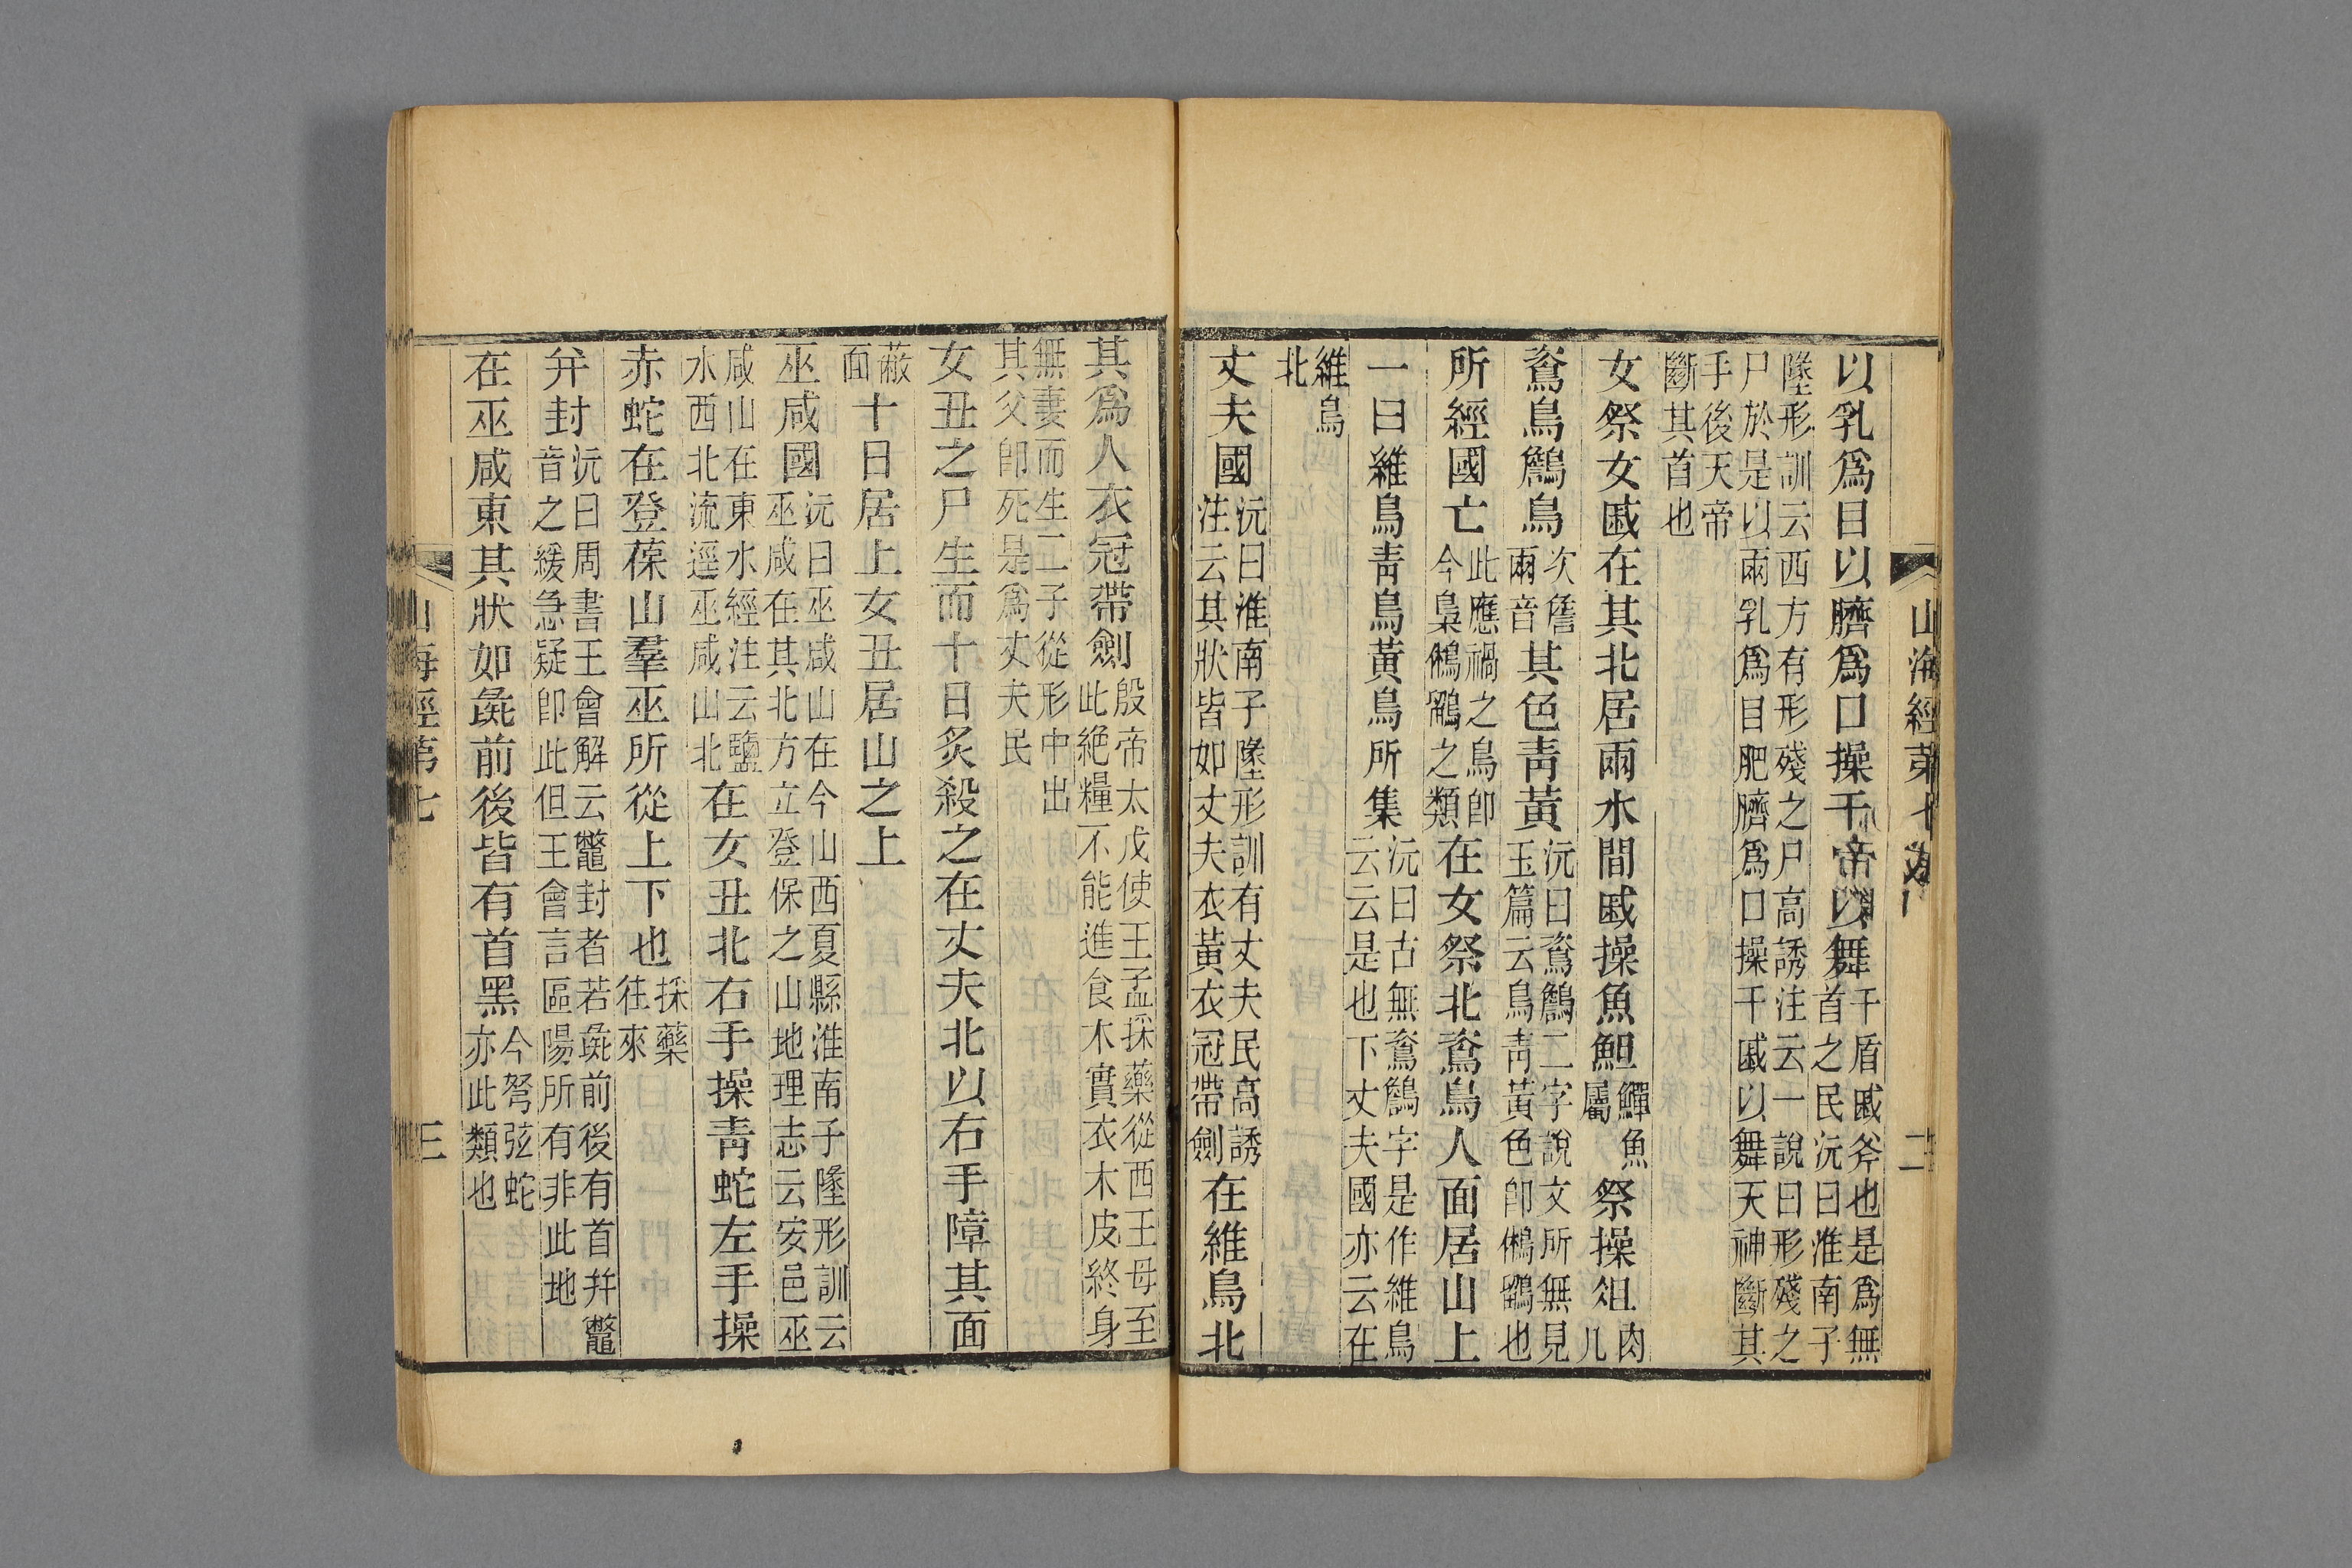 山海經第七
二
以乳爲目以臍爲口操干戚以舞干盾戚斧也是爲無首之民沅曰淮南子
墬形訓云西方有形殘之尸高誘注云一說曰形殘之尸於是以兩乳爲目肥臍爲口操干戚以舞天神斷其
手後天帝斷其首也
女祭女戚在其北居兩水間戚操魚䱇鱓魚屬祭操俎肉几
鴍鳥䳐鳥次詹兩音其色青黃沅曰鴍䳐二字說文所無見玉篇云鳥青黃色卽鵂鶹也
所經國亡此應禍之鳥卽今梟鵂鶹之類在女祭北鴍鳥人面居山上
一曰維鳥青鳥黃鳥所集沅曰古無鴍䳐字是作維鳥云云是也下丈夫國亦云在
維鳥北
丈夫國沅曰淮南子墬形訓有丈夫民高誘注云其狀皆如丈夫衣黃衣冠帶劍在維鳥北
其爲人衣冠帶劍殷帝太戊使王孟採藥從西王母至此絕糧不能進食木實衣木皮終身
無妻而生二子從形中出其父卽死是爲丈夫民
女丑之尸生而十日炙殺之在丈夫北以右手障其面
蔽面十日居上女丑居山之上
巫咸國沅曰巫咸山在今山西夏縣淮南子墬形訓云巫咸在其北方立登保之山地理志云安邑巫
咸山在東水經注云鹽水西北流逕巫咸山北在女丑北右手操青蛇左手操
赤蛇在登葆山羣巫所從上下也採藥往來
并封沅曰周書王會解云鼈封者若彘前後有首并鼈音之緩急疑卽此但王會言區陽所有非此地
在巫咸東其狀如彘前後皆有首黑今弩弦蛇亦此類也
山海經第七
三